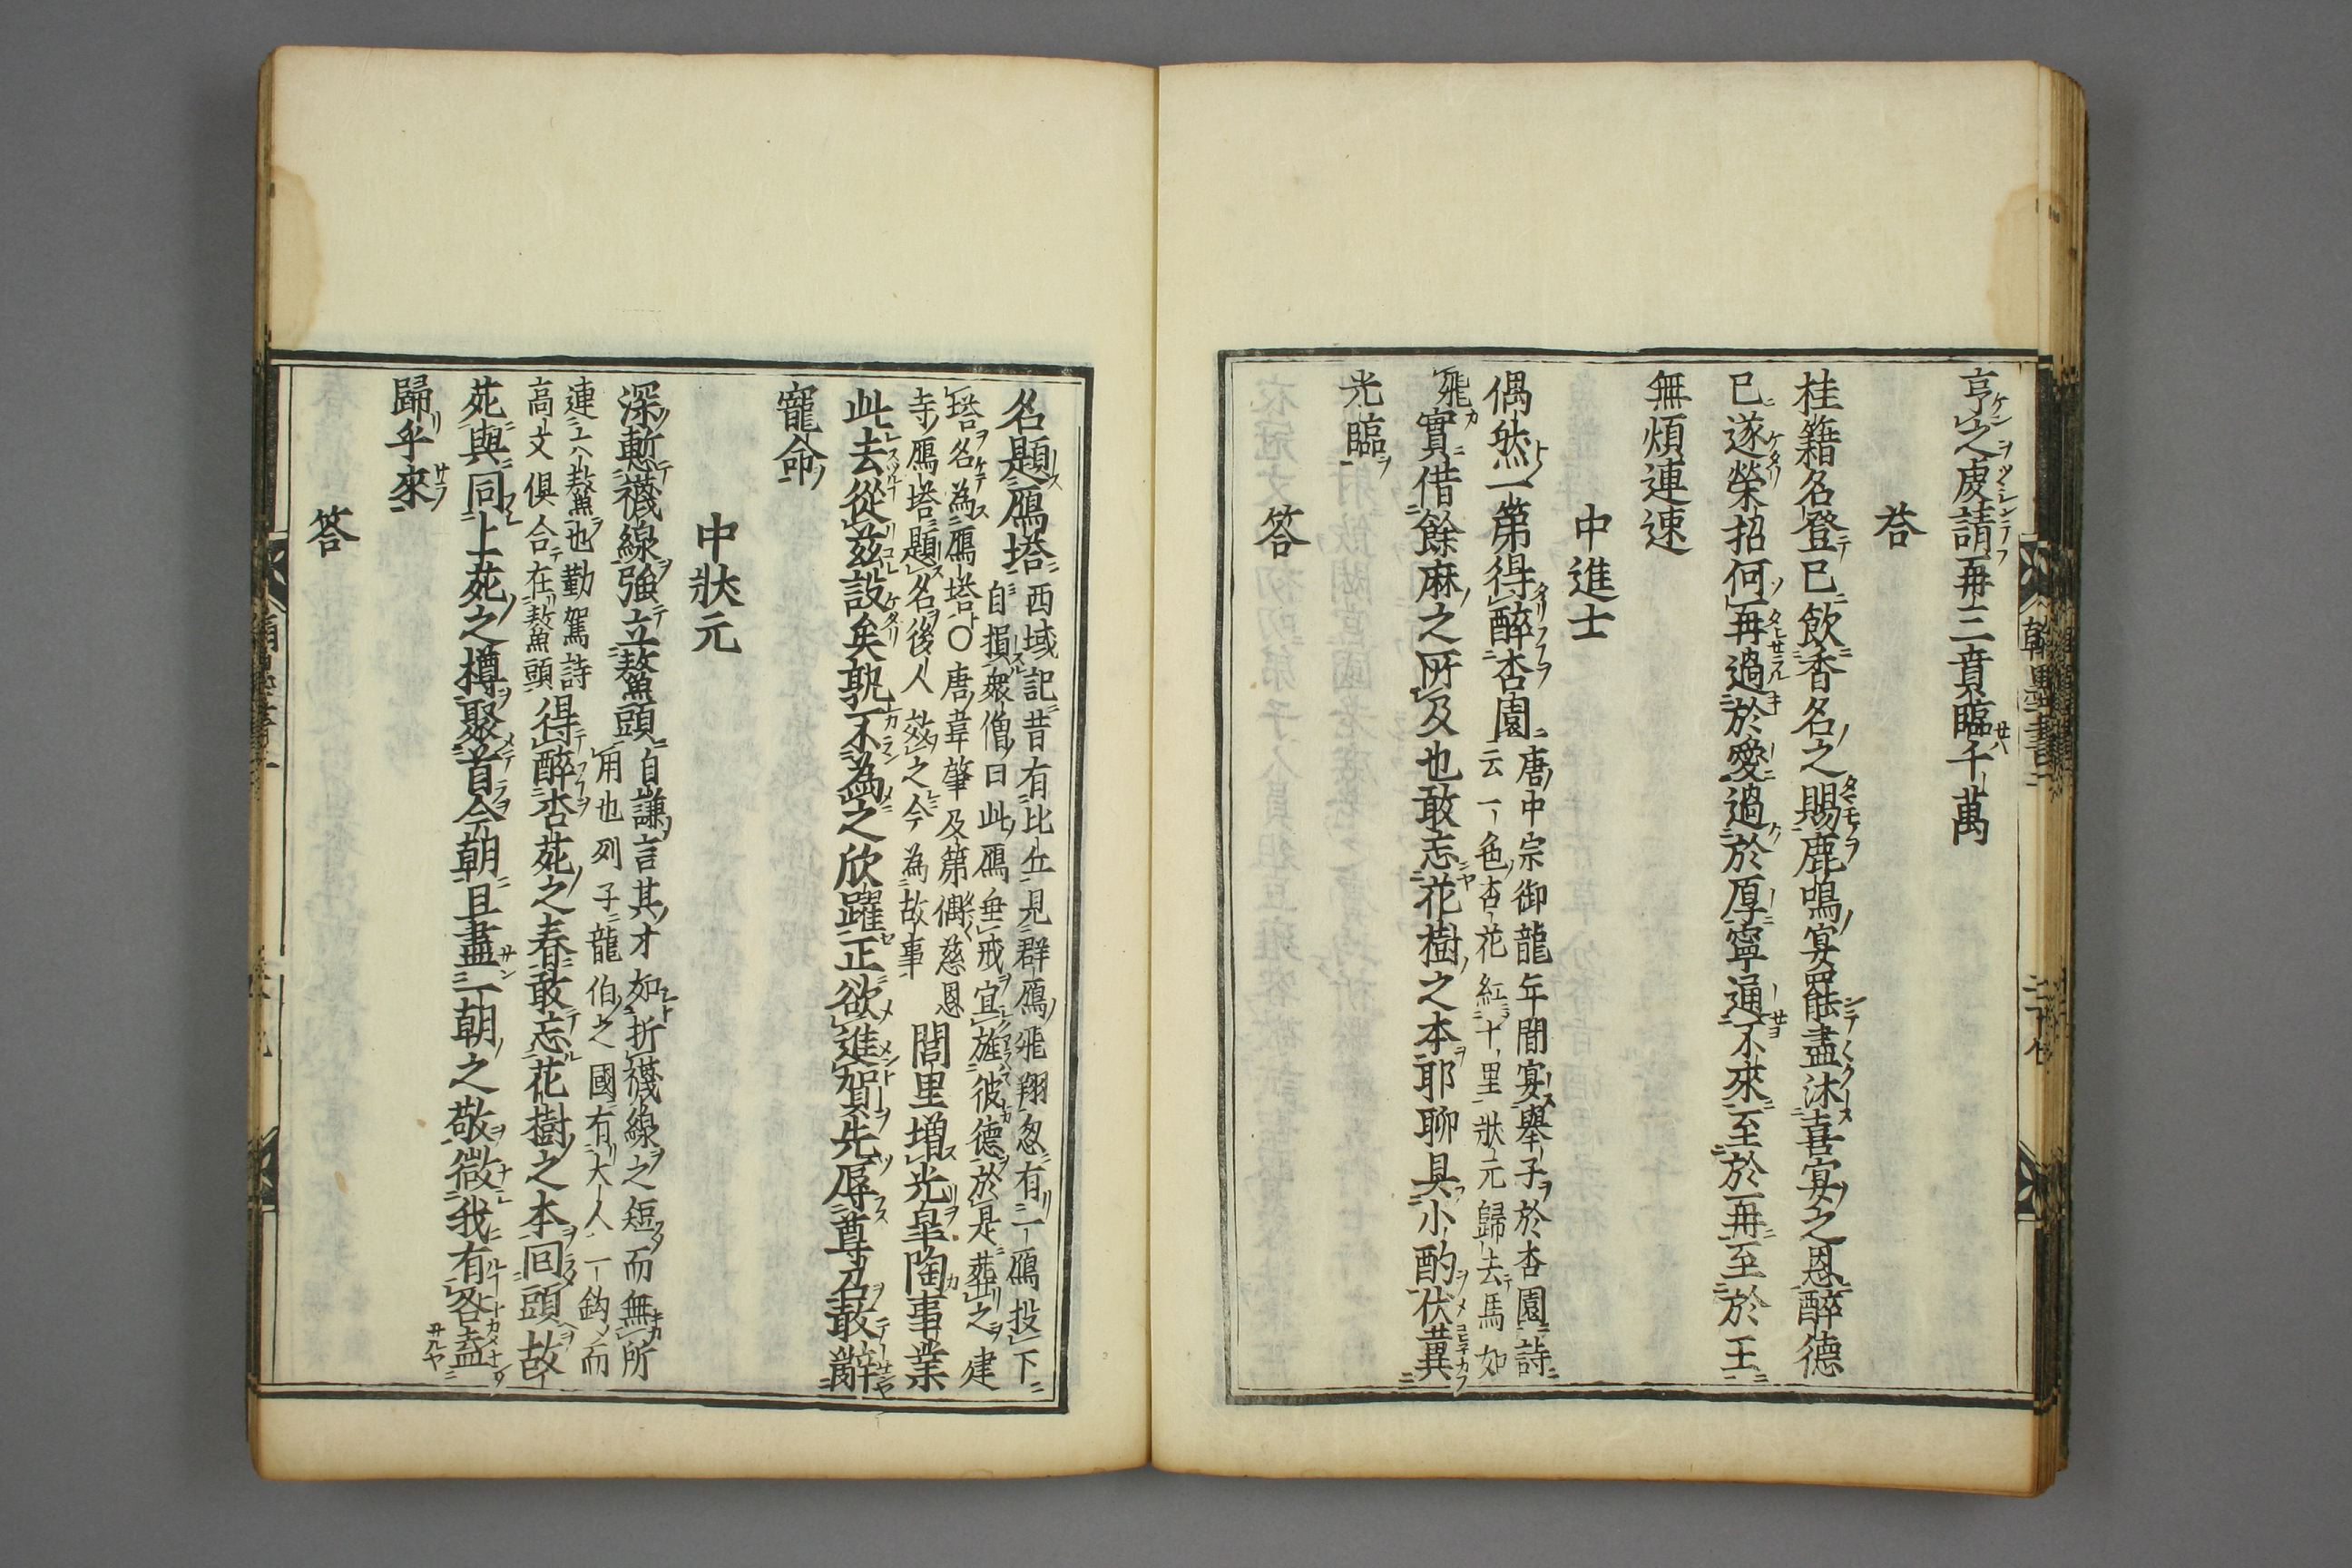 亨之虔請再三賁臨千萬
荅
桂籍名登已飲香名之賜鹿鳴宴罷盡沐喜宴之恩醉德
已遂榮招何再過於愛過於厚寧通不來至於再至於王
無煩連速
中進士
偶然一第得醉杏園
唐中宗御龍年間宴舉子於杏園詩
云一色杏花紅十里狀元歸去馬如
飛
實借餘麻之所及也敢忘花樹之本耶聊具小酌伏冀
光臨
答
名題鴈塔
西域記昔有比丘見群鴈飛翔忽有一鴈投下
自損衆僧曰此鴈垂戒宜旌彼德於是葬之建
塔名為鴈塔○唐韋肇及第偶慈恩
寺鴈塔題名後人效之今為故事
閭里增光皐陶事業
此去從茲設矣孰不為之欣躍正欲進賀先辱尊召敢辭
寵命
中狀元
深慙襪線強立鰲頭
自謙言其才如折襪線之短而無所
用也列子龍伯之國有大人一鈎而
連六鰲也勤駕詩
高文俱合在鰲頭
得醉杏苑之春敢忘花樹之本回頭故
苑與同上苑之樽聚首今朝且盡一朝之敬微我有咎盍
歸乎來
答
翰墨書二